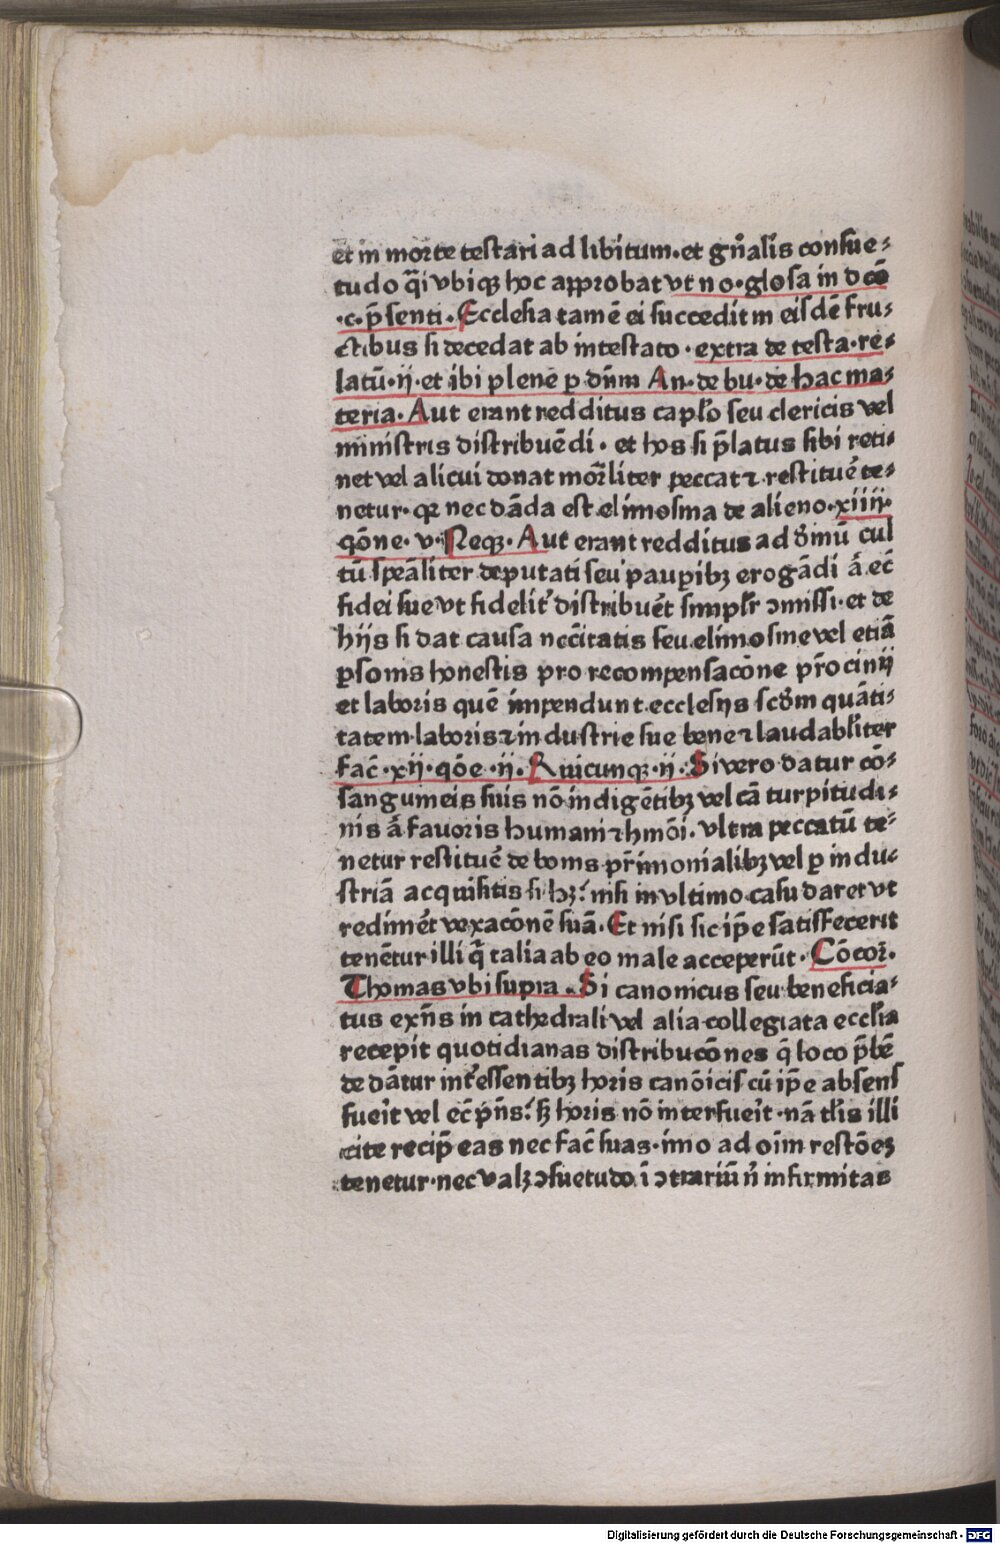 et in morte testari ad libitum. et gn̄alis consue⸗
tudo q̄i vbiqꝫ hoc approbat vt no. glosa in d cō
.c. p̄senti. Ecclesia tamē ei succedit in eisdē fru⸗
ctibus si decedat ab intestato. extra de testa. re⸗
latū. ij. et ibi plene p dn̄m An. de bu. de hac ma⸗
teria. Aut erant redditus caplo seu clericis vel
ministris distribuēdi. et hos si p̄latus sibi reti⸗
net vel alicui donat mor̄liter peccat ⁊ restituē te⸗
netur. qꝛ nec dāda est elimosma de alieno. xiiij.
qōne. v. Neqꝫ. Aut erant redditus ad d̄mū cul
tū sp̄eāliter deputati seu pauꝑibꝫ erogādi ā ec̄
fidei sue vt fidelit᷑ distribuēt simplr̄ ɔmissi. et de
hijs si dat causa nc̄citatis seu elimosine vel etiā
ꝑsonis honestis pro recompensacōne pr̄ocinij
et laboris quē impendunt ecclesijs scd̄m quāti⸗
tatem laboris ⁊ industrie sue bene ⁊ laudabl̄iter
fac̄. xij. qōe. ij. Quicunqꝫ. ij. Si vero datur cō⸗
sanguineis suis nō indigētibꝫ vel cā turpitudi⸗
nis ā fauoris humani ⁊ hmōi. vltra peccatū te⸗
netur restituē de bonis pr̄imonialibꝫ vel ꝑ indu⸗
striā acquisitis si hꝫ. nisi in vltimo casu daret vt
redimēt vexacōnē suā. Et nisi sic ip̄e satisfecerit
tenētur illi q̄ talia ab eo male acceperūt. Cōcor.
Thomas vbi supra. Si canonicus seu beneficia⸗
tus exn̄s in cathedrali vel alia collegiata eccl̄ia
recepit quotidianas distribucōnes q̄ loco p̄bē
de dātur int̄essentibꝫ horis canōicis cū ip̄e absens
fuei̇t vel ec̄ p̄n̄s. sꝫ horis nō interfuei̇t. nā tl̄is illi
cite recip̄ eas nec fac̄ suas. imo ad oīm restōeꝫ
tenetur. nec valꝫ ɔsuetudo ī ɔtrariū n̄ infirmitas
Digitalisierung gefördert durch die Deutsche Forschungsgemeinschaft - DFG